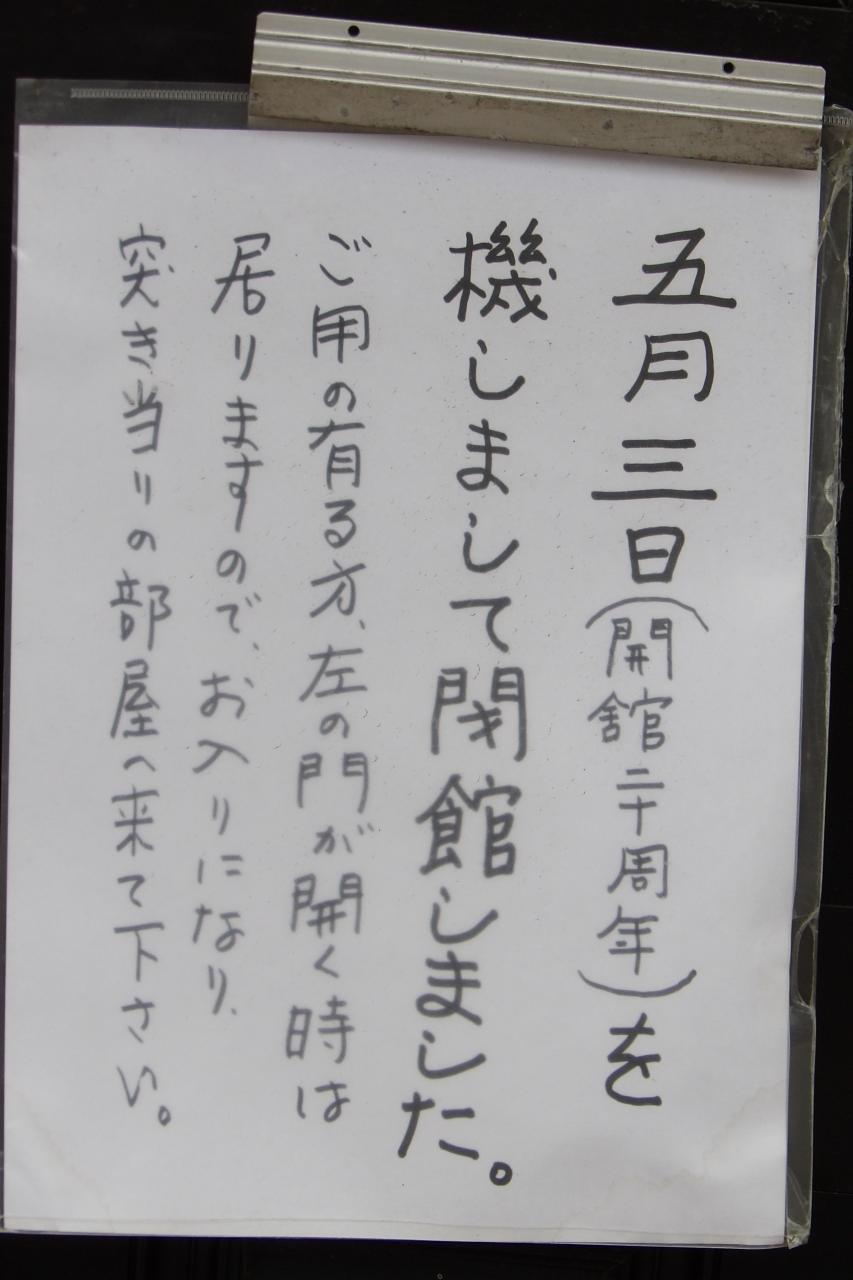 五月三日(開舘二十周年)を
機しまして閉館しました。
ご用の有る方、左の門が開く時は
居りますので、お入りになり、
突き当りの部屋へ来て下さい。